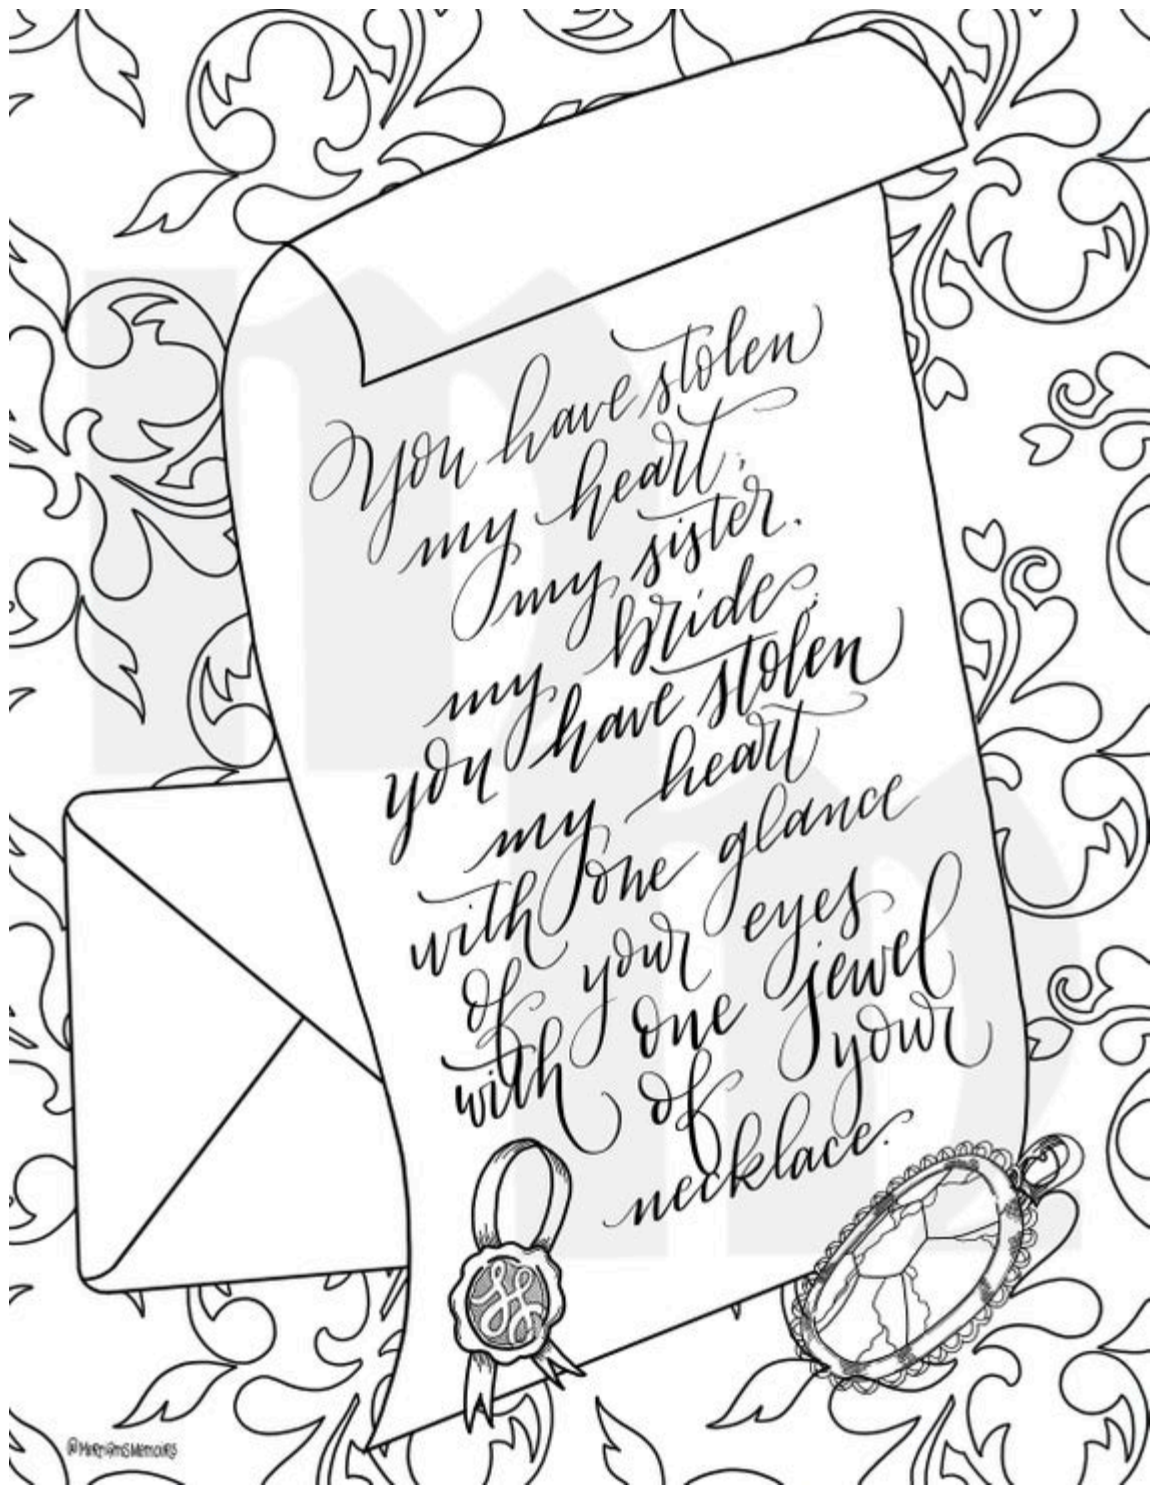 You have stolen
my heart,
my sister.
my bride;
you have stolen
my heart
with one glance
of your eyes
with one jewel
of your
necklace.